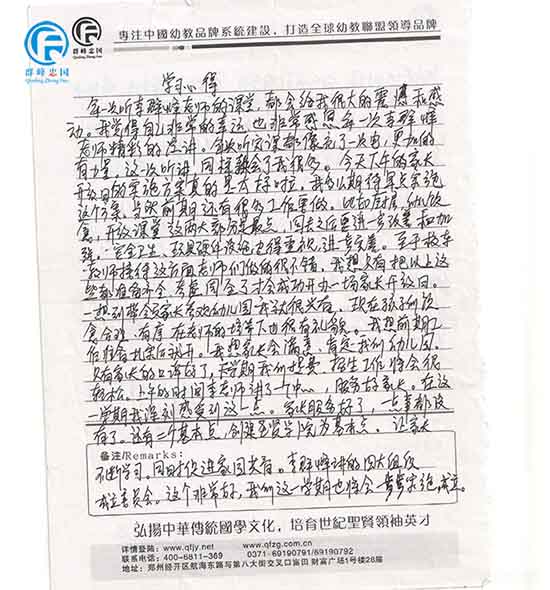 群峰忠国
群峰忠国
專注中國幼教品牌系統建設，打造全球幼教聯盟領導品牌
学习心得
每一次听李群峰老师的课堂，都会给我很大的震撼和感
动。我觉得自己非常的幸运，也非常感恩每一次李群峰
老师精彩的演讲。每次听完课都像充了一次电，更加的
有力量，这一次听讲，同样教会了我很多。今天大年的家长
开放日的实施方案真的是太好啦，我多么期待早点实施
这个方案，当然前期还有很多工作要做。比如厨房，幼儿饮
食，开放课堂这两大部分是最点，回去之后要进一步改善和加
强。安全卫生、玩具硬件设施也得重视，进一步完善。至于校车
教师接待这方面老师们做的很不错，我想只有把以上这
些都准备齐全，考虑周全了才会成功开办一场家长开放日。
一想到带全家长参观幼儿园我就很兴奋，现在孩子们饮
食合理，有序，在老师的培养下也很有礼貌。我想前期工
作准备扎实后就开。我想家长会满意，肯定我们幼儿园。
只有家长的口碑好了，下学期我们招生工作将会很
轻松。上午的时间李老师讲了一个中心，服务好家长。在这
一学期我深刻感受到这一点。家长服务好了，一点事都没
有了。还有二个基本点，创建圣贤学院为基本点。让家长
备注/Remarks:
不断学习。同时促进家园共育。李群峰讲的四大组成
成立委员会。这个非常好，我们这一学期也将会慢慢实施成立。
弘揚中華傳統國學文化，培育世紀聖賢領袖英才
详情登陆：www.qfjy.net www.qfzg.com.cn
联系电话：400-6811-369 0371-69190791/69190792
地址：郑州经开区航海东路与第八大街交叉口富田 财富广场1号楼28层